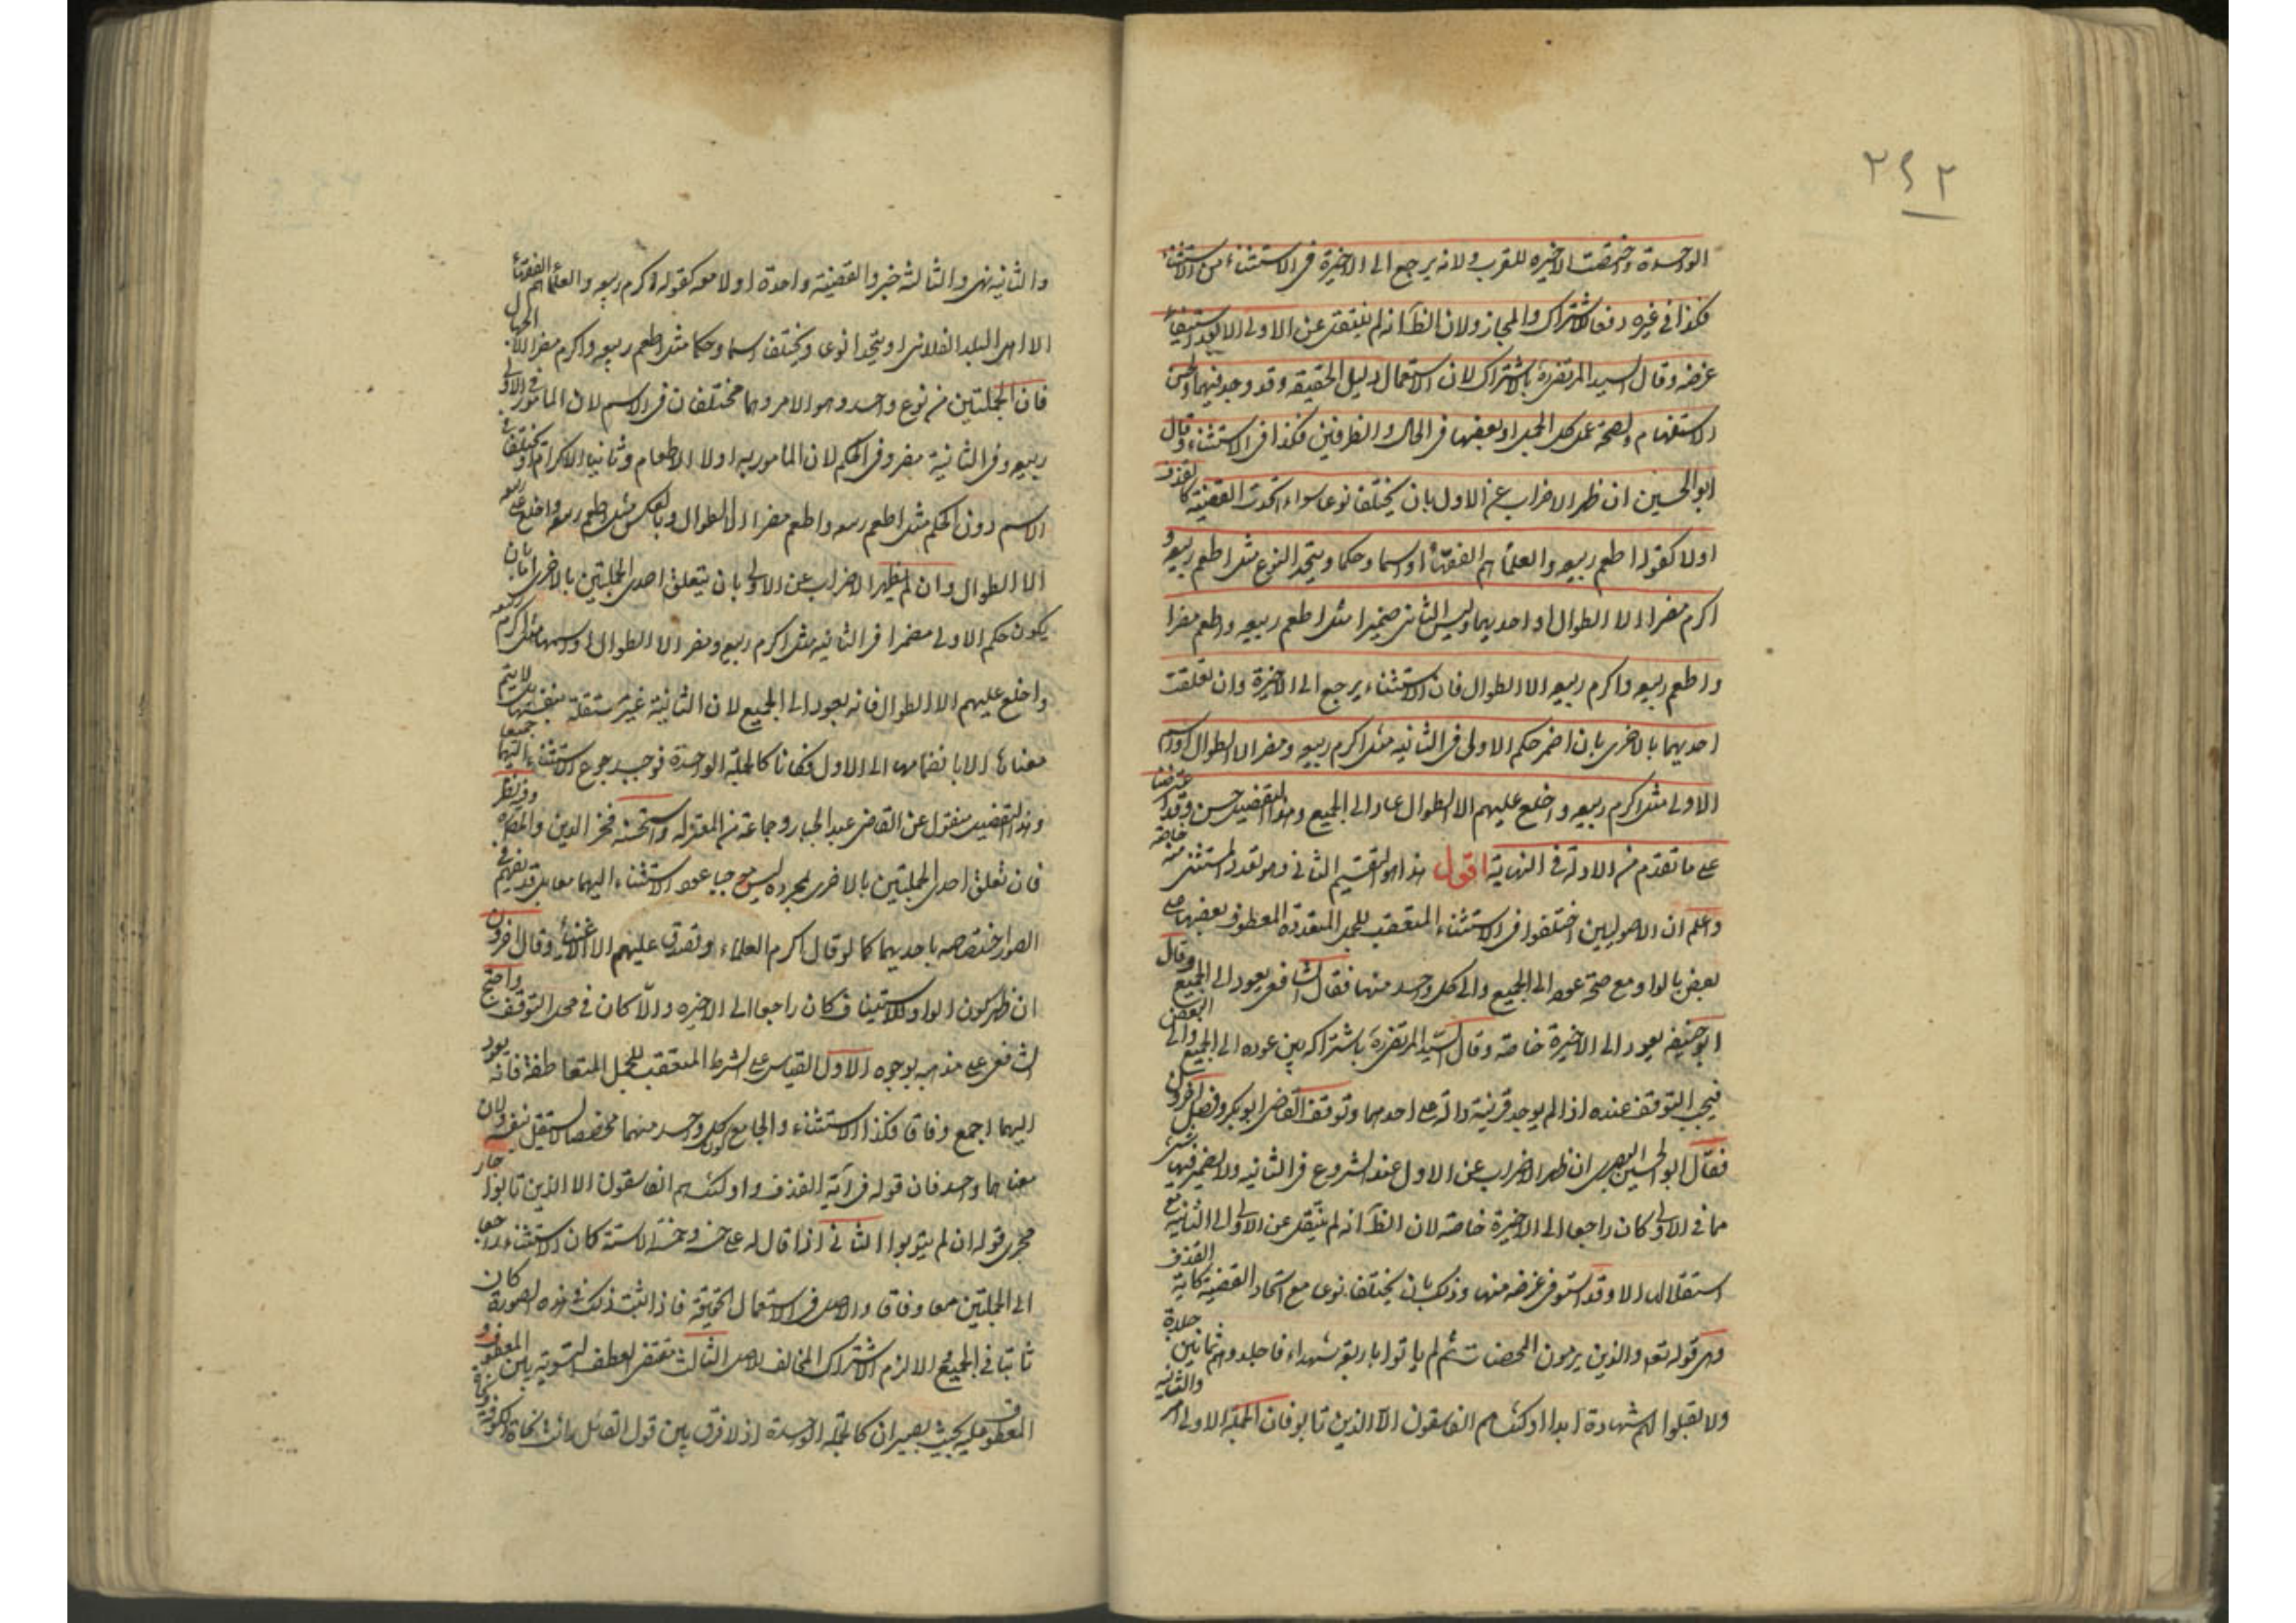 ٢٤٢
الواحدة وخصصت الاخيرة للقرب ولانه يرجع الى الاخيرة فى الاستثناء من الاستثناء
فكذا في غيره دفعا للاشتراك والمجاز ولان الظ انه لم ينتقل عن الاولى الا بعد استيفاء
غرضه وقال السيد المرتضى بالاشتراك لان الاستعمال دليل الحقيقه وقد وجد فيهما ولحسن
الاستفهام ولصحة عمل كل الجمل او بعضها فى الحال والظرفين فكذا فى الاستثناء وقال
ابو الحسين ان ظهر الاضراب عن الاول بان يختلفا نوعا سواء اتحدت القضية كالقذف
اولا كقوله اطعم ربيعه والعلماء هم الفقهاء او اسما وحكما ويتحد النوع مثل اطعم ربيعه و
اكرم مضرا الا الطوال او احديهما وليس الثانى ضميرا مثل اطعم ربيعه واطعم مضرا
واطعم ربيعه واكرم ربيعه الا الطوال فان الاستثناء يرجع الى الاخيرة وان تعلقت
احديهما بالاخرى بان اضمر حكم الاولى فى الثانيه مثل اكرم ربيعه ومضر الا الطوال او اسم
الاولى مثل اكرم ربيعه واخلع عليهم الا الطوال عاد الى الجميع وهذا التفصيل حسن وقد اعترضنا
على ما تقدم من الادلة في النهاية اقول هذا هو التقسيم الثانى وهو تعدد المستثنى منه خاصة
واعلم ان الاصوليين اختلفوا فى الاستثناء المتعقب للجمل المتعددة المعطوف بعضها على
بعض بالواو مع صحة عوده الى الجميع والى كل واحد منها فقال الشافعى يعود الى الجميع وقال
ابو حنيفه يعود الى الاخيرة خاصة وقال السيد المرتضى باشتراكه بين عوده الى الجميع والى البعض
فيجب التوقف عنده اذا لم يوجد قرينة دالة على احدهما وتوقف القاضى ابو بكر وفصل اخرون
فقال ابو الحسين البصرى ان ظهر الاضراب عن الاول عند الشروع فى الثانيه ولا يضمر فيها شئ
مما في الاولى كان راجعا الى الاخيرة خاصة لان الظ انه لم ينتقل عن الاولى الى الثانية مع
استقلالها الا وقد استوفى غرضه منها وذلك بان يختلفا نوعا مع اتحاد القضية كاية القذف
وهى قوله تعه والذين يرمون المحصنات ثم لم ياتوا باربعة شهداء فاجلدوهم ثمانين جلدة
ولا تقبلوا لهم شهادة ابدا واولئك هم الفاسقون الا الذين تابوا فان الجملة الاولى امر والثانية
والثانيه نهى والثالثه خبر والقضية واحدة اولا معه كقوله اكرم ربيعه والعلماء هم الفقهاء
الا اهل البلد الفلانى او يتحدا نوعا ويختلفا اسما وحكما مثل اطعم ربيعه واكرم مضر الا الجهال
فان الجملتين من نوع واحد وهو الامر وهما مختلفان فى الاسم لان المامور فى الاولى
ربيعه وفى الثانية مضر وفى الحكم لان المامور به اولا الاطعام وثانيا الاكرام او يختلفا فى
الاسم دون الحكم مثل اطعم ربيعه واطعم مضرا الا الطوال وبالعكس مثل اطعم ربيعه واخلع على ربيعه
الا الطوال وان لم يظهر الاضراب عن الاولى بان يتعلق احدى الجملتين بالاخرى اما بان
يكون حكم الاولى مضمرا فى الثانيه مثل اكرم ربيع ومضر الا الطوال او اسمها مثل اكرم ربيعه
واخلع عليهم الا الطوال فانه يعود الى الجميع لان الثانية غير مستقلة بنفسها بل لا يتم
معناها الا بانضمامها الى الاول فكانا كالجملة الواحدة فوجب رجوع الاستثناء اليهما جميعا
وهذا التفصيل منقول عن القاضى عبد الجبار وجماعة من المعتزله واستحسنه فخر الدين والمصنف وفيه نظر
فان تعلق احدى الجملتين بالاخرى بمجرده ليس موجبا عود الاستثناء اليهما معا بل قد يفهم في
الصور اختصاصه باحديهما كما لو قال اكرم العلماء وتصدق عليهم الا الاغنياء وقال اخرون
ان ظهر كون الواو للاستيناف كان راجعا الى الاخيره والا كان في محل التوقف واحتج
الشافعى على مذهبه بوجوه الاول القياس على الشرط المتعقب للجمل المتعاطفة فانه يعود
اليهما اجمع وفاقا فكذا الاستثناء والجامع كون كل واحد منهما مخصصا لا يستقل بنفسه ولان
معناهما واحد فان قوله فى آية القذف واولئك هم الفاسقون الا الذين تابوا جار
مجرى قوله ان لم يتوبوا الثانى اذا قال له على خمسة وخمسة الا ستة كان الاستثناء راجعا
الى الجملتين معا وفاقا والاصل فى الاستعمال الحقيقة فاذا ثبت ذلك في هذه الصورة كان
ثابتا في الجميع والا لزم الاشتراك المخالف للاصل الثالث مقتضى العطف التسوية بين المعطوف و
المعطوف عليه بحيث يصيران كالجملة الواحدة اذ لا فرق بين قول القائل